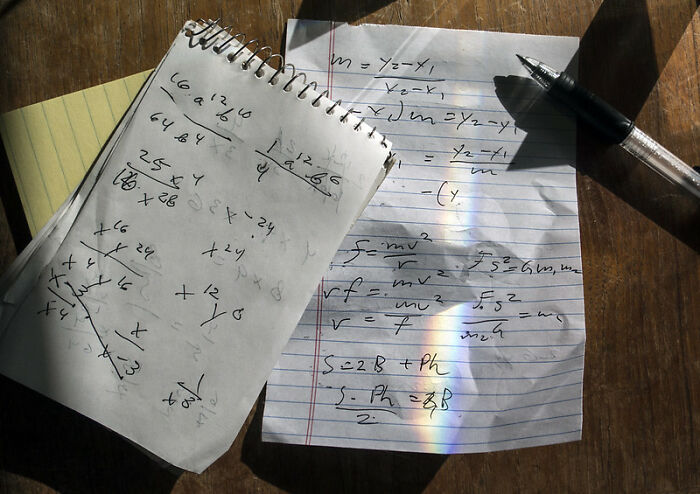 16 a^12 b^10
64 b^4
1 a^12 b^6
4
25 x^4
x^28
x^-24
x^16
x^24
x^24
x^4
x^16
x^12
y^8
x^4
x
x^13
1
x^8
m = y₂-y₁
x₂-x₁
x₁)m = y₂-y₁
= y₂-y₁
m
= (y
f = mv²
r
Fs² = Gm₁m₂
rf = mv²
r = mv²
f
Fs²
m₂G
= m₁
S = 2B + Ph
S - Ph = B
2